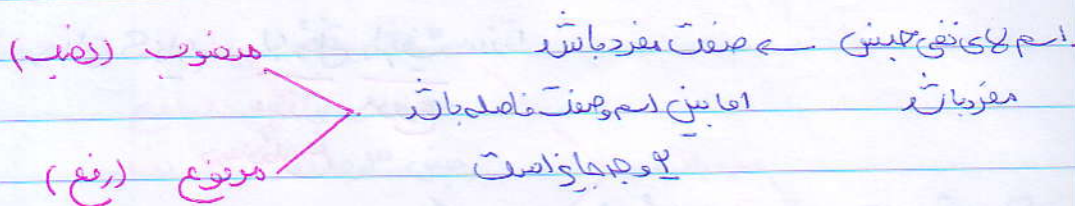 اسم لای نفی جنس ← صفت مفرد باشد منصوب (نصب)
مفرد باشد اما بین اسم و صفت فاصله باشد
۲ وجه جایز است مرفوع (رفع)